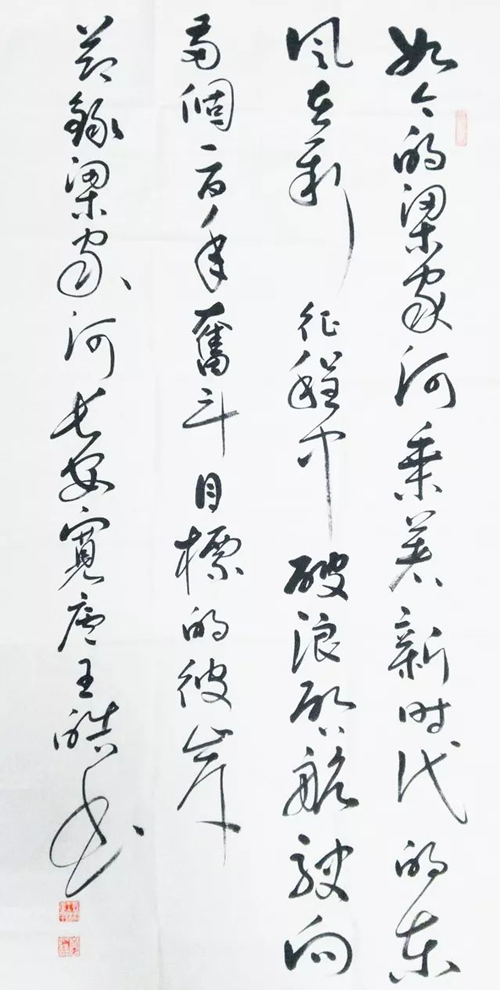 如今的梁家河乘着新时代的东
风在新征程中破浪启航驶向
两个一百年奋斗目标的彼岸
节录梁家河长安宽庐王皓书